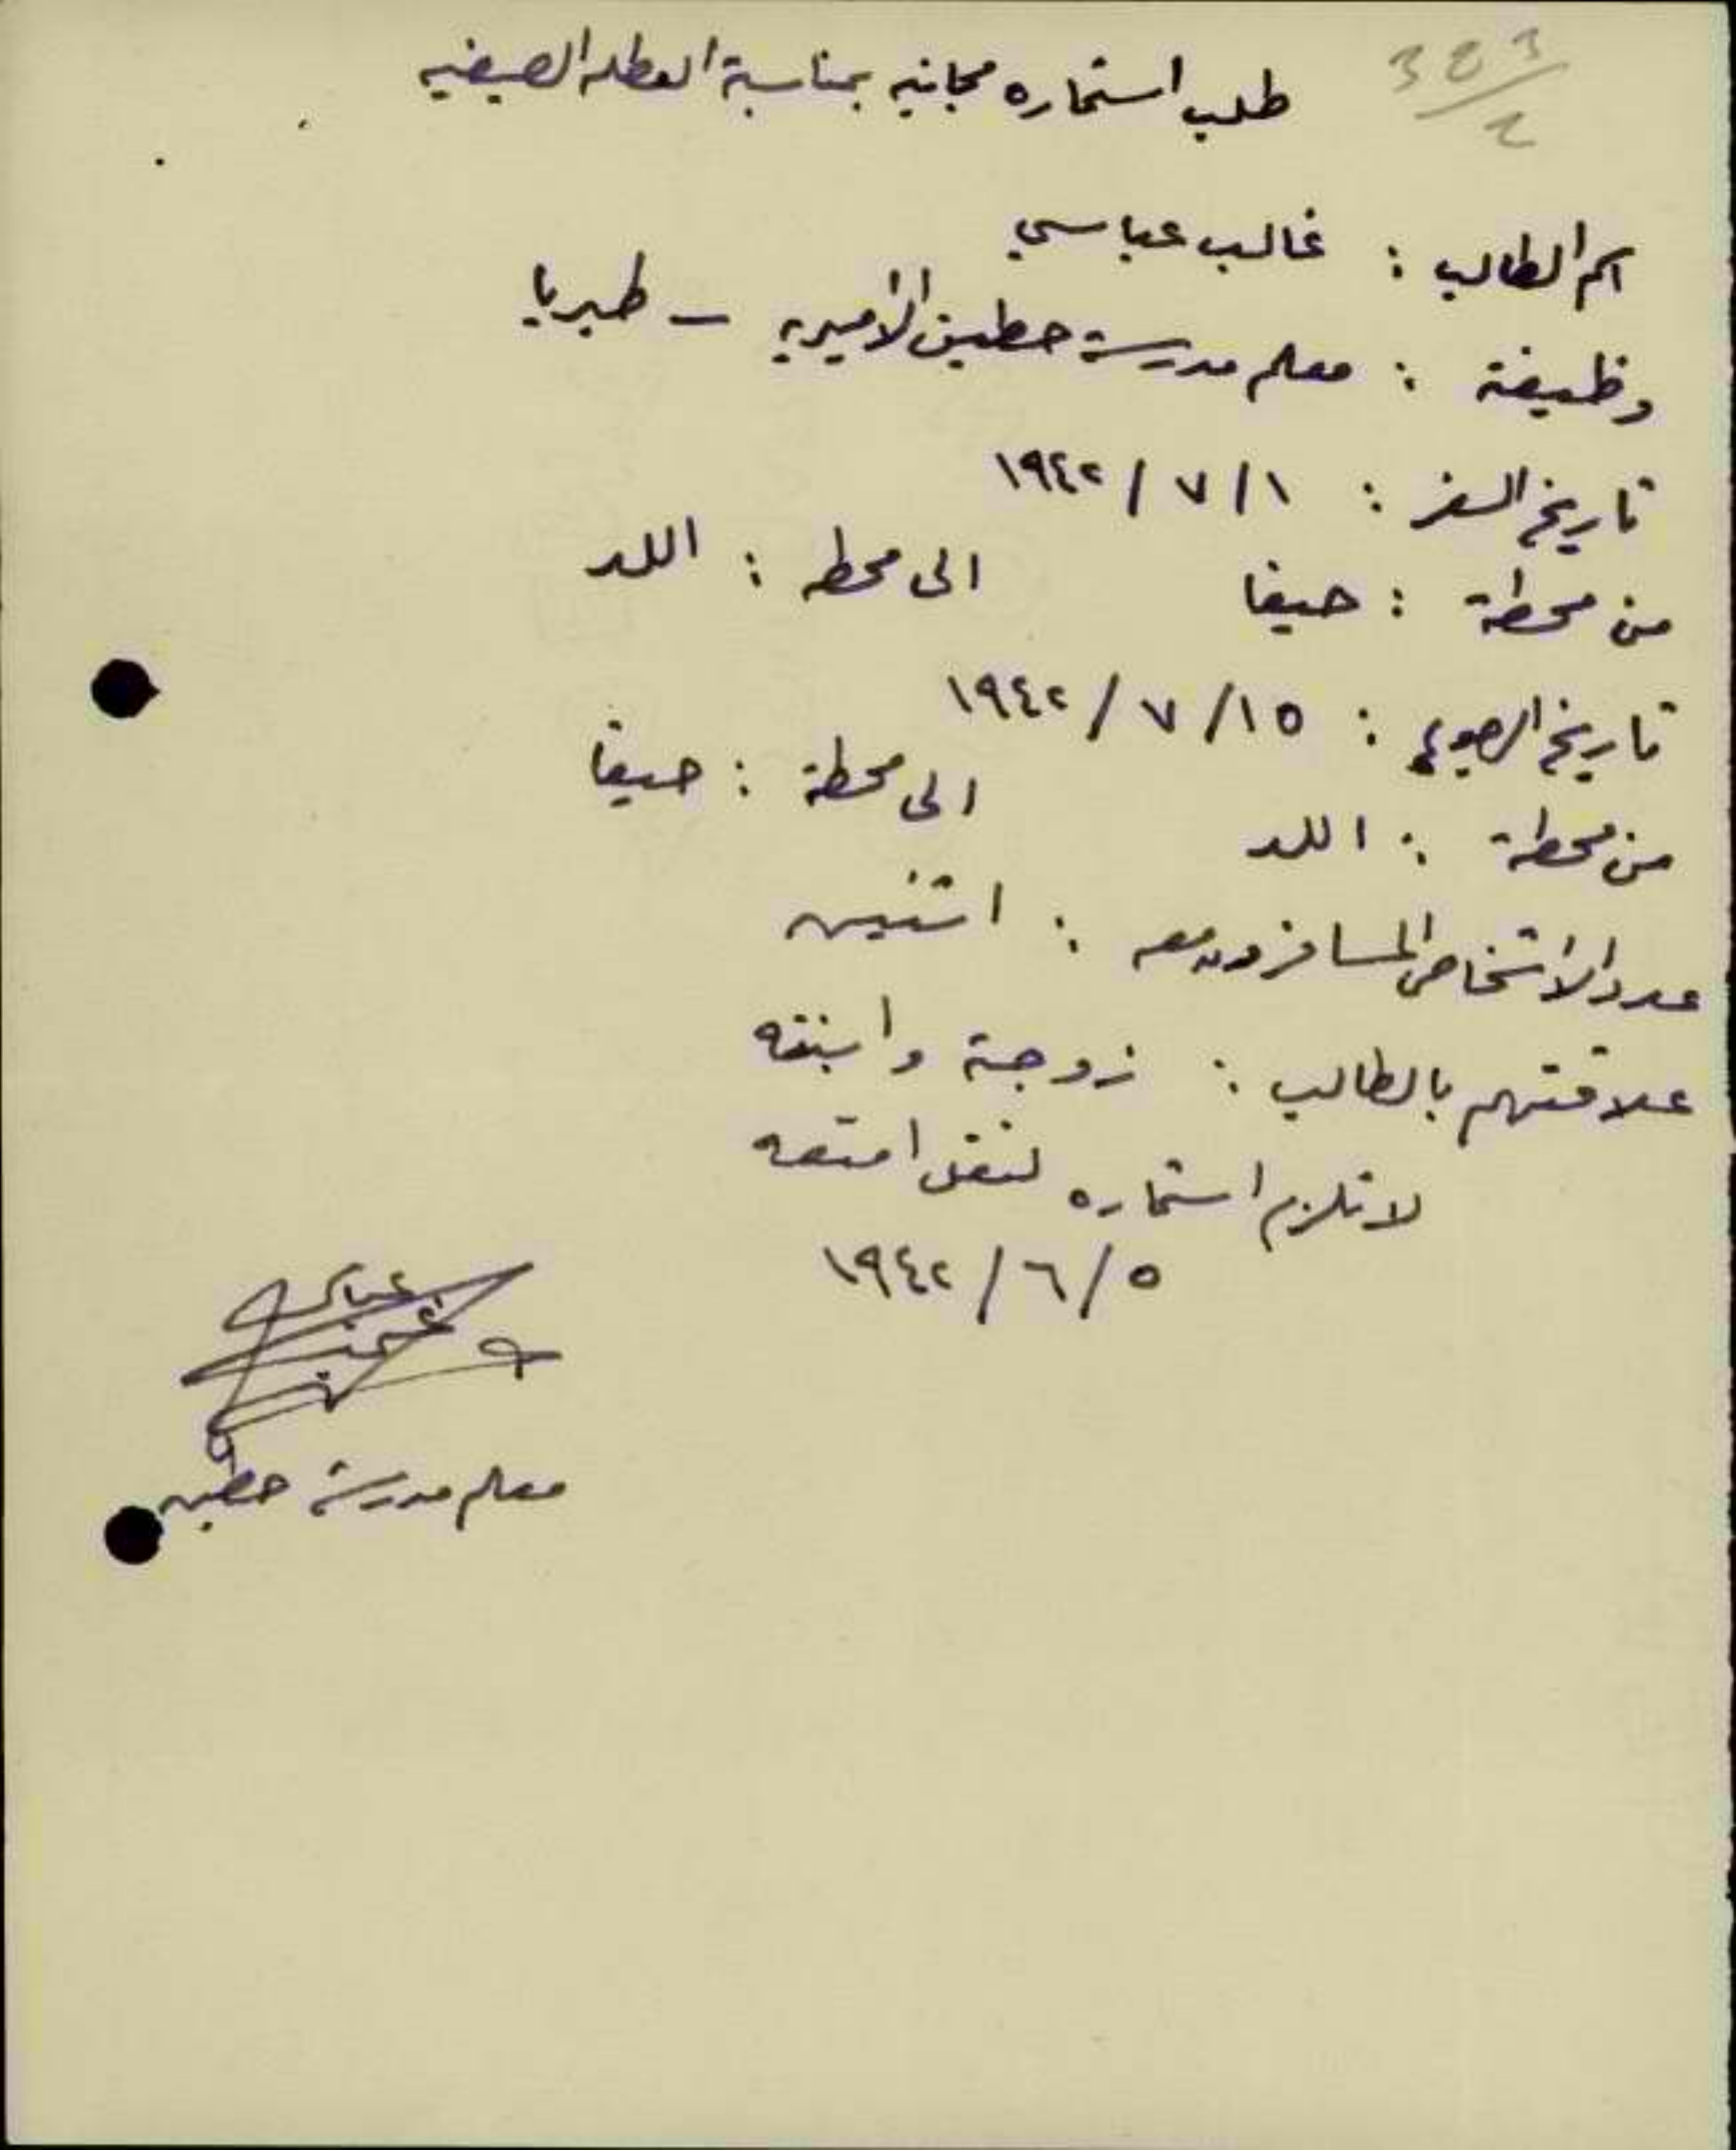 طلب استماره مجانيه بمناسبة العطله الصيفيه
اسم الطالب : غالب عباسي
وظيفته : معلم مدرسة حطين الأميريه – طبريا
تاريخ السفر : ١ / ٧ / ١٩٤٢
من محطة : حيفا الى محطه : اللد
تاريخ الرجوع : ١٥ / ٧ / ١٩٤٢
من محطة : اللد الى محطة : حيفا
عدد الأشخاص المسافرون معه : اثنين
علاقتهم بالطالب : زوجته وابنته
لا تلزم استماره لنقل امتعه
٥ / ٦ / ١٩٤٢
معلم مدرسة حطين